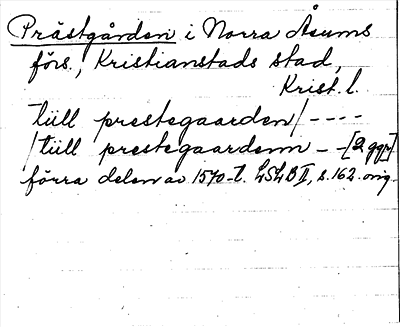 Prästgården i Norra Åsums
förs., Kristianstads stad,
Krist. l.
tiill prestegaarden/----
/tiill prestegaardenn - -[2 ggr]
förra delen av 1570-t. LSLB II, s. 162. orig.